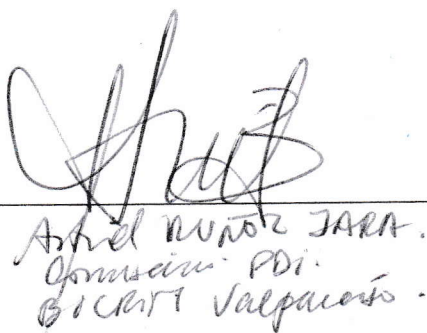 Astrid MUÑOZ JARA.
Comisario PDI.
BICRIM Valparaíso.